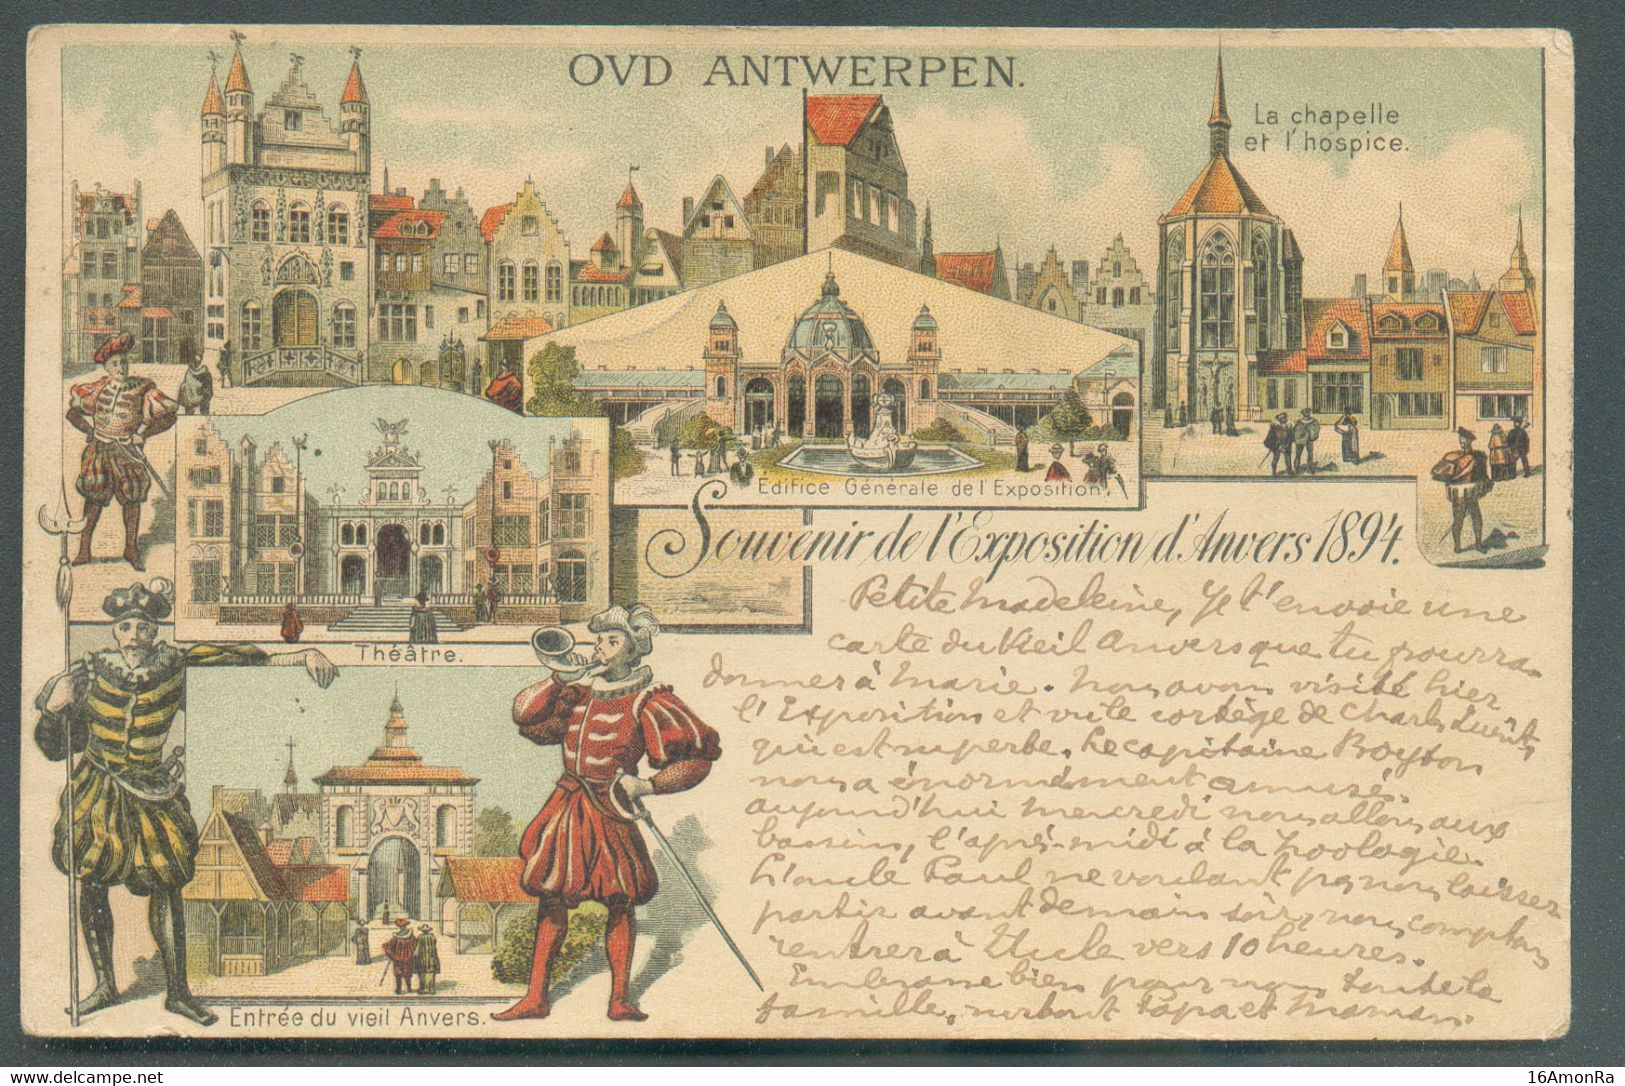 OVD ANTWERPEN.
La chapelle
et l'hospice.
Edifice Générale de l'Exposition.
Souvenir de l'Exposition d'Anvers 1894.
Théâtre.
Entrée du vieil Anvers.
Petite Madeleine, Je t'envoie une
carte du Vieil Anvers que tu pourra
donner à Marie. Nous avons visité hier
l'Exposition et vu le cortège de Charles Quint,
qui est superbe. Le capitaine Boyton
nous a énormément amusé.
aujourd'hui mercredi nous allons aux
bassins, l'après-midi à la Zoologie.
L'oncle Paul ne voulant pas nous laisser
partir avant demain soir, nous comptons
rentrer à Uccle vers 10 heures.
Embrasse bien pour nous toute la
famille, surtout Papa et Maman.
16AmonRa